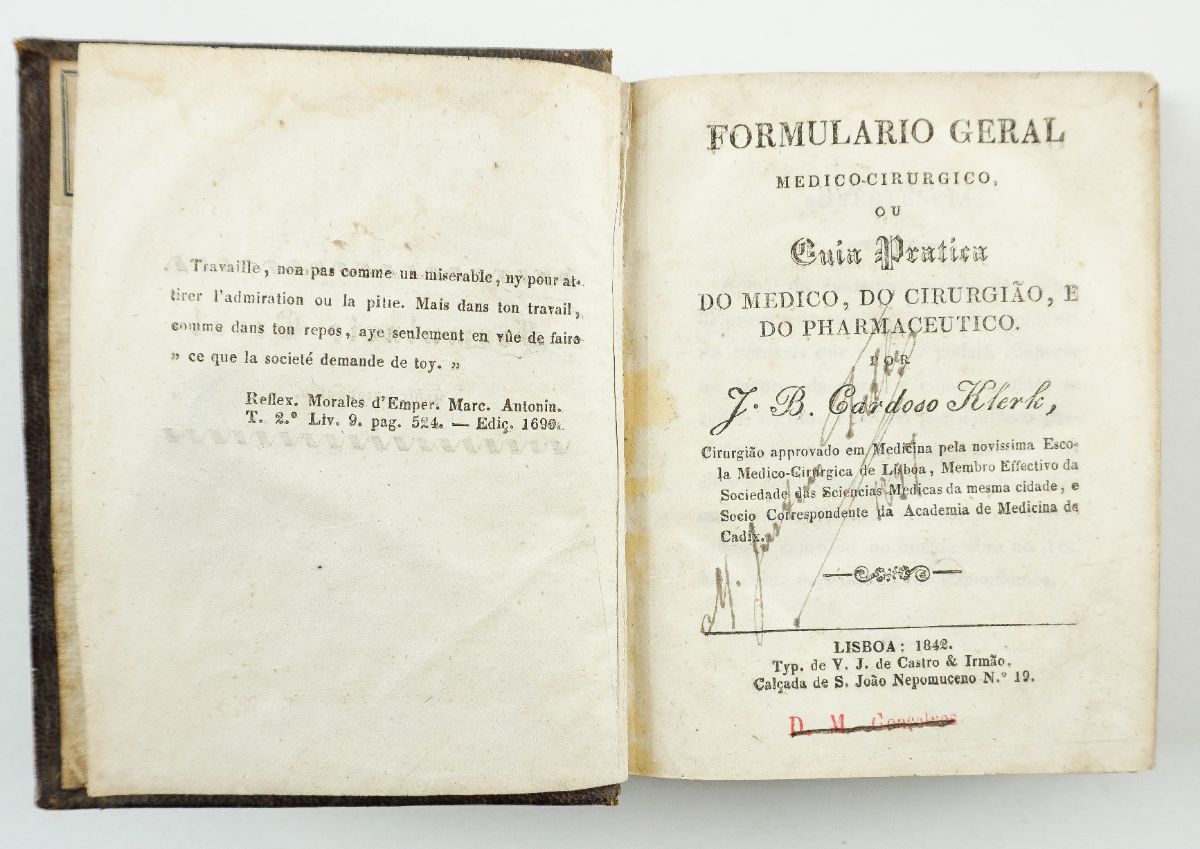 Travaille, non pas comme un miserable, ny pour at-
tirer l'admiration ou la pitie. Mais dans ton travail,
comme dans ton repos, aye seulement en vûe de faire
" ce que la societé demande de toy. "
Reflex. Morales d'Emper. Marc. Antonin.
T. 2.º Liv. 9. pag. 524. — Ediç. 1690.
FORMULARIO GERAL
MEDICO-CIRURGICO,
OU
Guia Pratica
DO MEDICO, DO CIRURGIÃO, E
DO PHARMACEUTICO.
POR
J. B. Cardoso Klerk,
Cirurgião approvado em Medicina pela novissima Esco-
la Medico-Cirurgica de Lisboa, Membro Effectivo da
Sociedade das Sciencias Medicas da mesma cidade, e
Socio Correspondente da Academia de Medicina de
Cadix.
M.
LISBOA: 1842.
Typ. de V. J. de Castro & Irmão,
Calçada de S. João Nepomuceno N.º 19.
D. M. Gonçalves